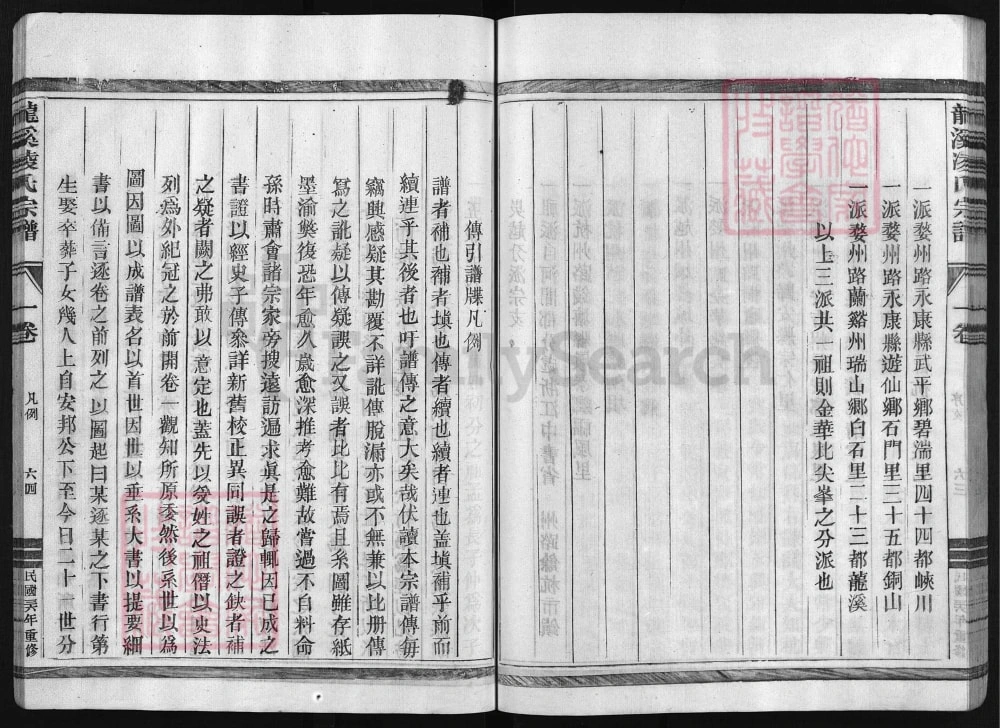 一派婺州路永康縣武平鄉碧湍里四十四都峽川
一派婺州路永康縣遊仙鄉石門里三十五都銅山
一派婺州路蘭谿州瑞山鄉白石里二十三都龍溪
以上三派共一祖則金華北尖峯之分派也
龍溪凌氏宗譜
一卷
六三
民國
年重修
傳引譜牒凡例
譜者補也補者塡也傳者續也續者連也蓋塡補乎前而
續連乎其後者也吁譜傳之意大矣哉伏讀本宗譜傳每
竊興感疑其勘覆不詳訛傳脫漏亦或不無兼以比册傳
寫之訛疑以傳疑誤之又誤者比比有焉且系圖雖存紙
墨渝斁復恐年愈久歲愈深推考愈難故嘗過不自料命
孫時肅會諸宗家旁搜遠訪遍求眞是之歸輒因已成之
書證以經史子傳叅詳新舊校正異同誤者證之缺者補
之疑者闕之弗敢以意定也蓋先以受姓之祖僭以史法
列爲外紀冠之於前開卷一觀知所原委然後系世以爲
圖因圖以成譜表名以首世因世以垂系大書以提要細
書以備言逐卷之前列之以圖起曰某逐某之下書行第
生娶卒葬子女幾人上自安邦公下至今日二十一世分
龍溪凌氏宗譜
一卷
凡例
六四
民國
年重修
FamilySearch